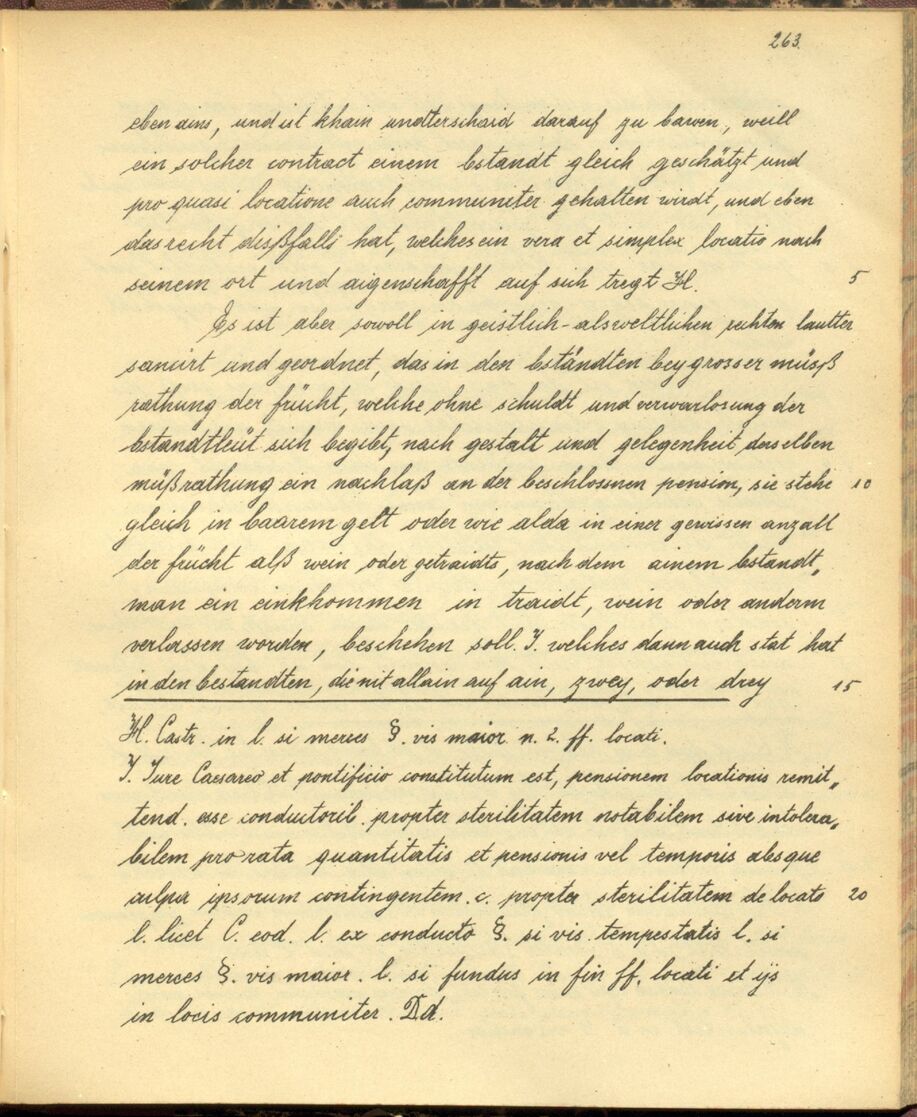 263.
eben ains, und ist khain undterschaid darauf zu bawen, weill
ein solcher contract einem bstandt gleich geschätzt und
pro quasi locatione auch communiter gehalten wirdt, und eben
das recht dißfalls hat, welches ein vera et simplex locatio nach
seinem ort und aigenschafft auf sich tregt H. 5
Es ist aber sowoll in geistlich- als weltlichen rechten lautter
sancirt und geordnet, das in den bständten bey grosser müsß
rathung der frücht, welche ohne schuldt und verwarlosung der
bstandtleüt sich begibt, nach gestalt und gelegenheit derselben
müßrathung ein nachlaß an der beschlossnen pension, sie stehe 10
gleich in baarem gelt oder wie alda in einer gewissen anzall
der frücht alß wein oder getraidts, nach dem ainem bstandt„
man ein einkhommen in traidt, wein oder anderm
verlassen worden, beschehen soll. I. welches dann auch stat hat
in den bestandten, die nit allain auf ain, zwey, oder drey 15
H. Castr. in l. si merces §. vis maior n. 2. ff. locati.
I. Jure Caesareo et pontificio constitutum est, pensionem locationis remit„
tend. esse conductorib. propter sterilitatem notabilem sive intolera„
bilem pro rata quantitatis et pensionis vel temporis absque
culpa ipsorum contingentem. c. propter sterilitatem de locato 20
l. licet C. eod. l. ex conducto §. si vis tempestatis l. si
merces §. vis maior. l. si fundus in fin ff. locati et ijs
in locis communiter. Dd.